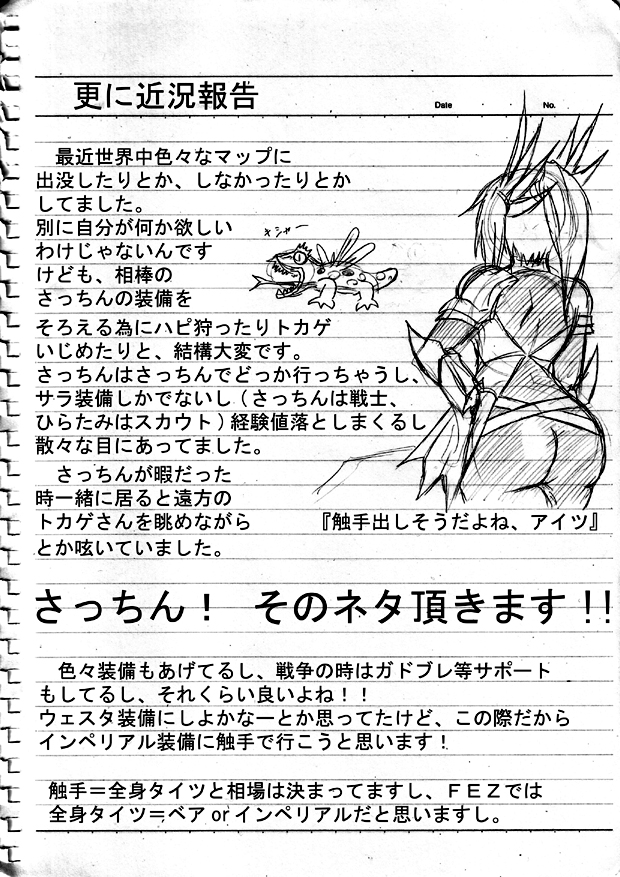 更に近況報告
Date ・ ・ No.
最近世界中色々なマップに
出没したりとか、しなかったりとか
してました。
別に自分が何か欲しい
わけじゃないんです
けども、相棒の
さっちんの装備を
キシャー
そろえる為にハピ狩ったりトカゲ
いじめたりと、結構大変です。
さっちんはさっちんでどっか行っちゃうし、
サラ装備しかでないし(さっちんは戦士、
ひらたみはスカウト)経験値落としまくるし
散々な目にあってました。
さっちんが暇だった
時一緒に居ると遠方の
トカゲさんを眺めながら
とか呟いていました。
『触手出しそうだよね、アイツ』
さっちん! そのネタ頂きます!!
色々装備もあげてるし、戦争の時はガドブレ等サポート
もしてるし、それくらい良いよね!!
ウェスタ装備にしよかなーとか思ってたけど、この際だから
インペリアル装備に触手で行こうと思います!
触手=全身タイツと相場は決まってますし、FEZでは
全身タイツ=ベアorインペリアルだと思いますし。